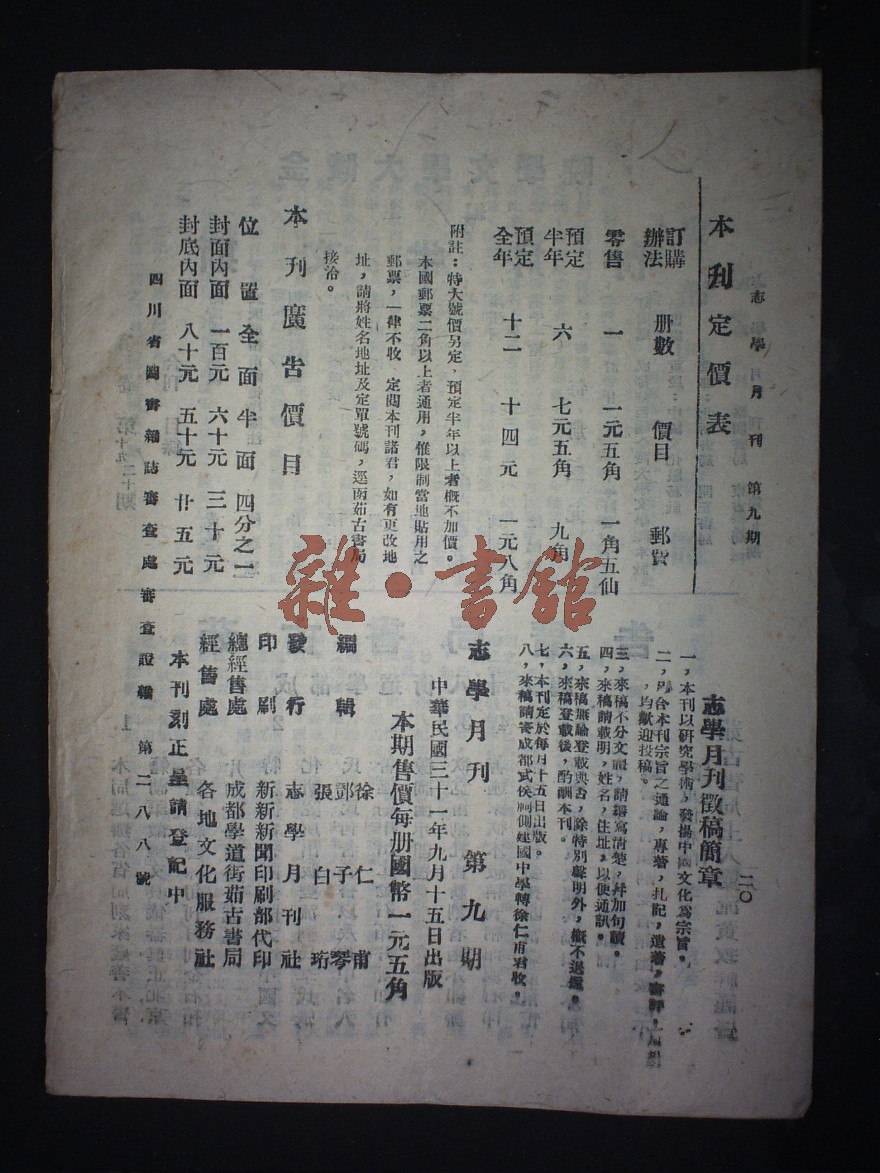 志學月刊 第九期
二〇
本刊定價表
訂購辦法 册數 價目 郵費
零售 一 一元五角 一角五仙
預定半年 六 七元五角 九角
預定全年 十二 十四元 一元八角
附註：特大號價另定，預定半年以上者概不加價。
本國郵票二角以上者通用，惟限制當地貼用之
郵票，一律不收 定閱本刊諸君，如有更改地
址，請將姓名地址及定單號碼，逕函茹古書局
接洽。
本刊廣告價目
位置 全面 半面 四分之一
封面內面 一百元 六十元 三十元
封底內面 八十元 五十元 廿五元
四川省圖書雜誌審查處審查證 第二八八號
志學月刊徵稿簡章
一，本刊以研究學術，發揚中國文化為宗旨。
二，與合本刊宗旨之通論，專著，札記，遺著，書評，
，均歡迎投稿。
三，來稿不分文體，請繕寫清楚，幷加句讀。
四，來稿請載明，姓名，住址，以便通訊。
五，來稿無論登載與否，除特別聲明外，概不退還。
六，來稿登載後，酌酬本刊。
七，本刊定於每月十五日出版。
八，來稿請寄成都武侯祠側建國中學轉徐仁甫君收。
志學月刊 第九期
中華民國三十一年九月十五日出版
本期售價每册國幣一元五角
編輯 徐仁甫
鄧子琴
張白珩
發行 志學月刊社
印刷 新新新聞印刷部代印
總經售處 成都學道街茹古書局
經售處 各地文化服務社
本刊刻正呈請登記中
雜·書館